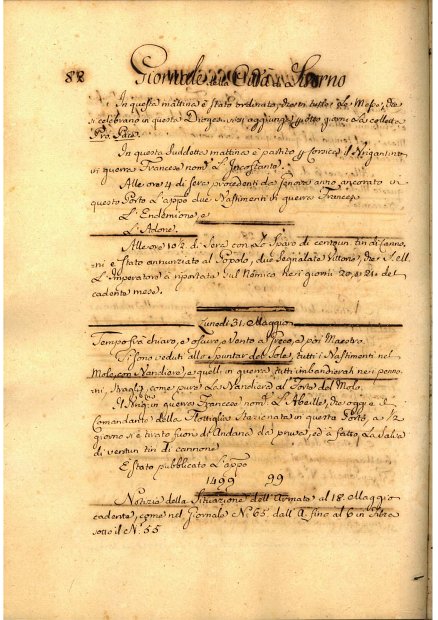 88 Giornale della Città di Livorno
In questa mattina è stato ordinato, che in tutte Le Messe, che
si celebrano in questa Diogesi, vi si aggiunga p otto giorni La colletta
Pro Pace.
In questa suddetta mattina è partito p Corsica il Brigantino
in guerra Francese nom.º L'Incostante.
Alle ore 4 di sera procedenti da Genova anno ancorato in
questo Porto L'appº due Bastimenti in guerra Francesi
L'Endimione, e
L'Adone.
Alle ore 10 ½ di Sera con Lo Sparo di centoun tiri di Canno,
ni è stato annunziato al Popolo, due Segnalate Vittorie, che S. M.
L'Imperatore à riportata sul Nemico nei giorni 20, e 21 del
cadente mese.
Lunedì 31. Maggio
Tempo frà chiaro, e oscuro, Vento a Greco, e poi Maestro.
Si sono veduti allo spuntar del Sole, tutti i Bastimenti nel
Molo, con Bandiere, e quelli in guerra, tutti imbandierati nei penno,
ni, Straglj, come pure La Bandiera al Forte del Molo.
Il Brig.no in guerra Francese nom.º L'Abeille, che oggi è il
Comandante della Flottiglia Stazionata in questo Porto, a ½
giorno si è tirato fuori di Andana da prua, ed à fatto La Salva
di ventun tiri di cannone
È stato pubblicato L'appº
1499 99
Notizie della Situazione dell'Armata al 18. Maggio
cadente, come nel Giornale Nº. 65. dall' A. fino al 6 in Filza
sotto il Nº. 55